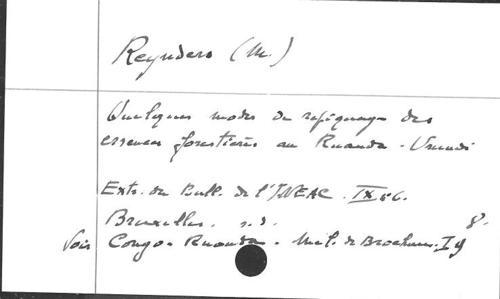 Reynders (M.)
Quelques modes de repiquage des
essences forestières au Ruanda-Urundi
Extr. du Bull. de l'INEAC. IX 56.
Bruxelles. s.d. 8.
Voir Congo-Ruanda. Mél. de Brochures. I 9